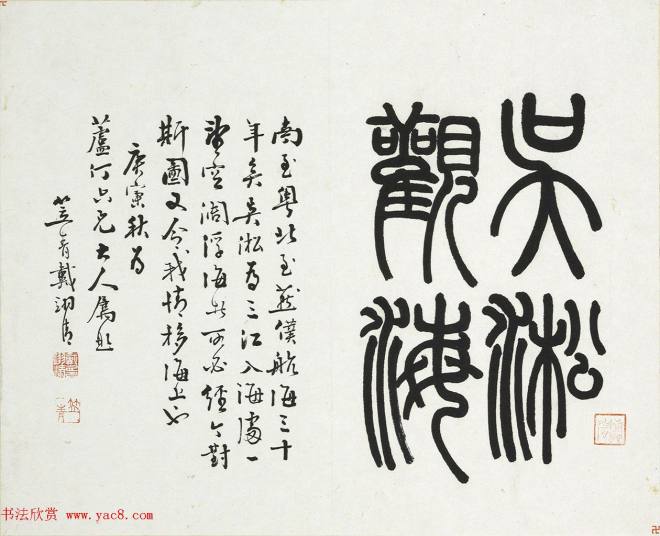 吳淞
觀海
南至粵北至燕僕航海三十
年矣吳淞為三江入海處一
望空闊浮海者所必經今對
斯圖又令我情移海上
庚寅秋為
蘆汀兄大人屬題
笠青戴翊清
书法欣赏 www.yac8.com